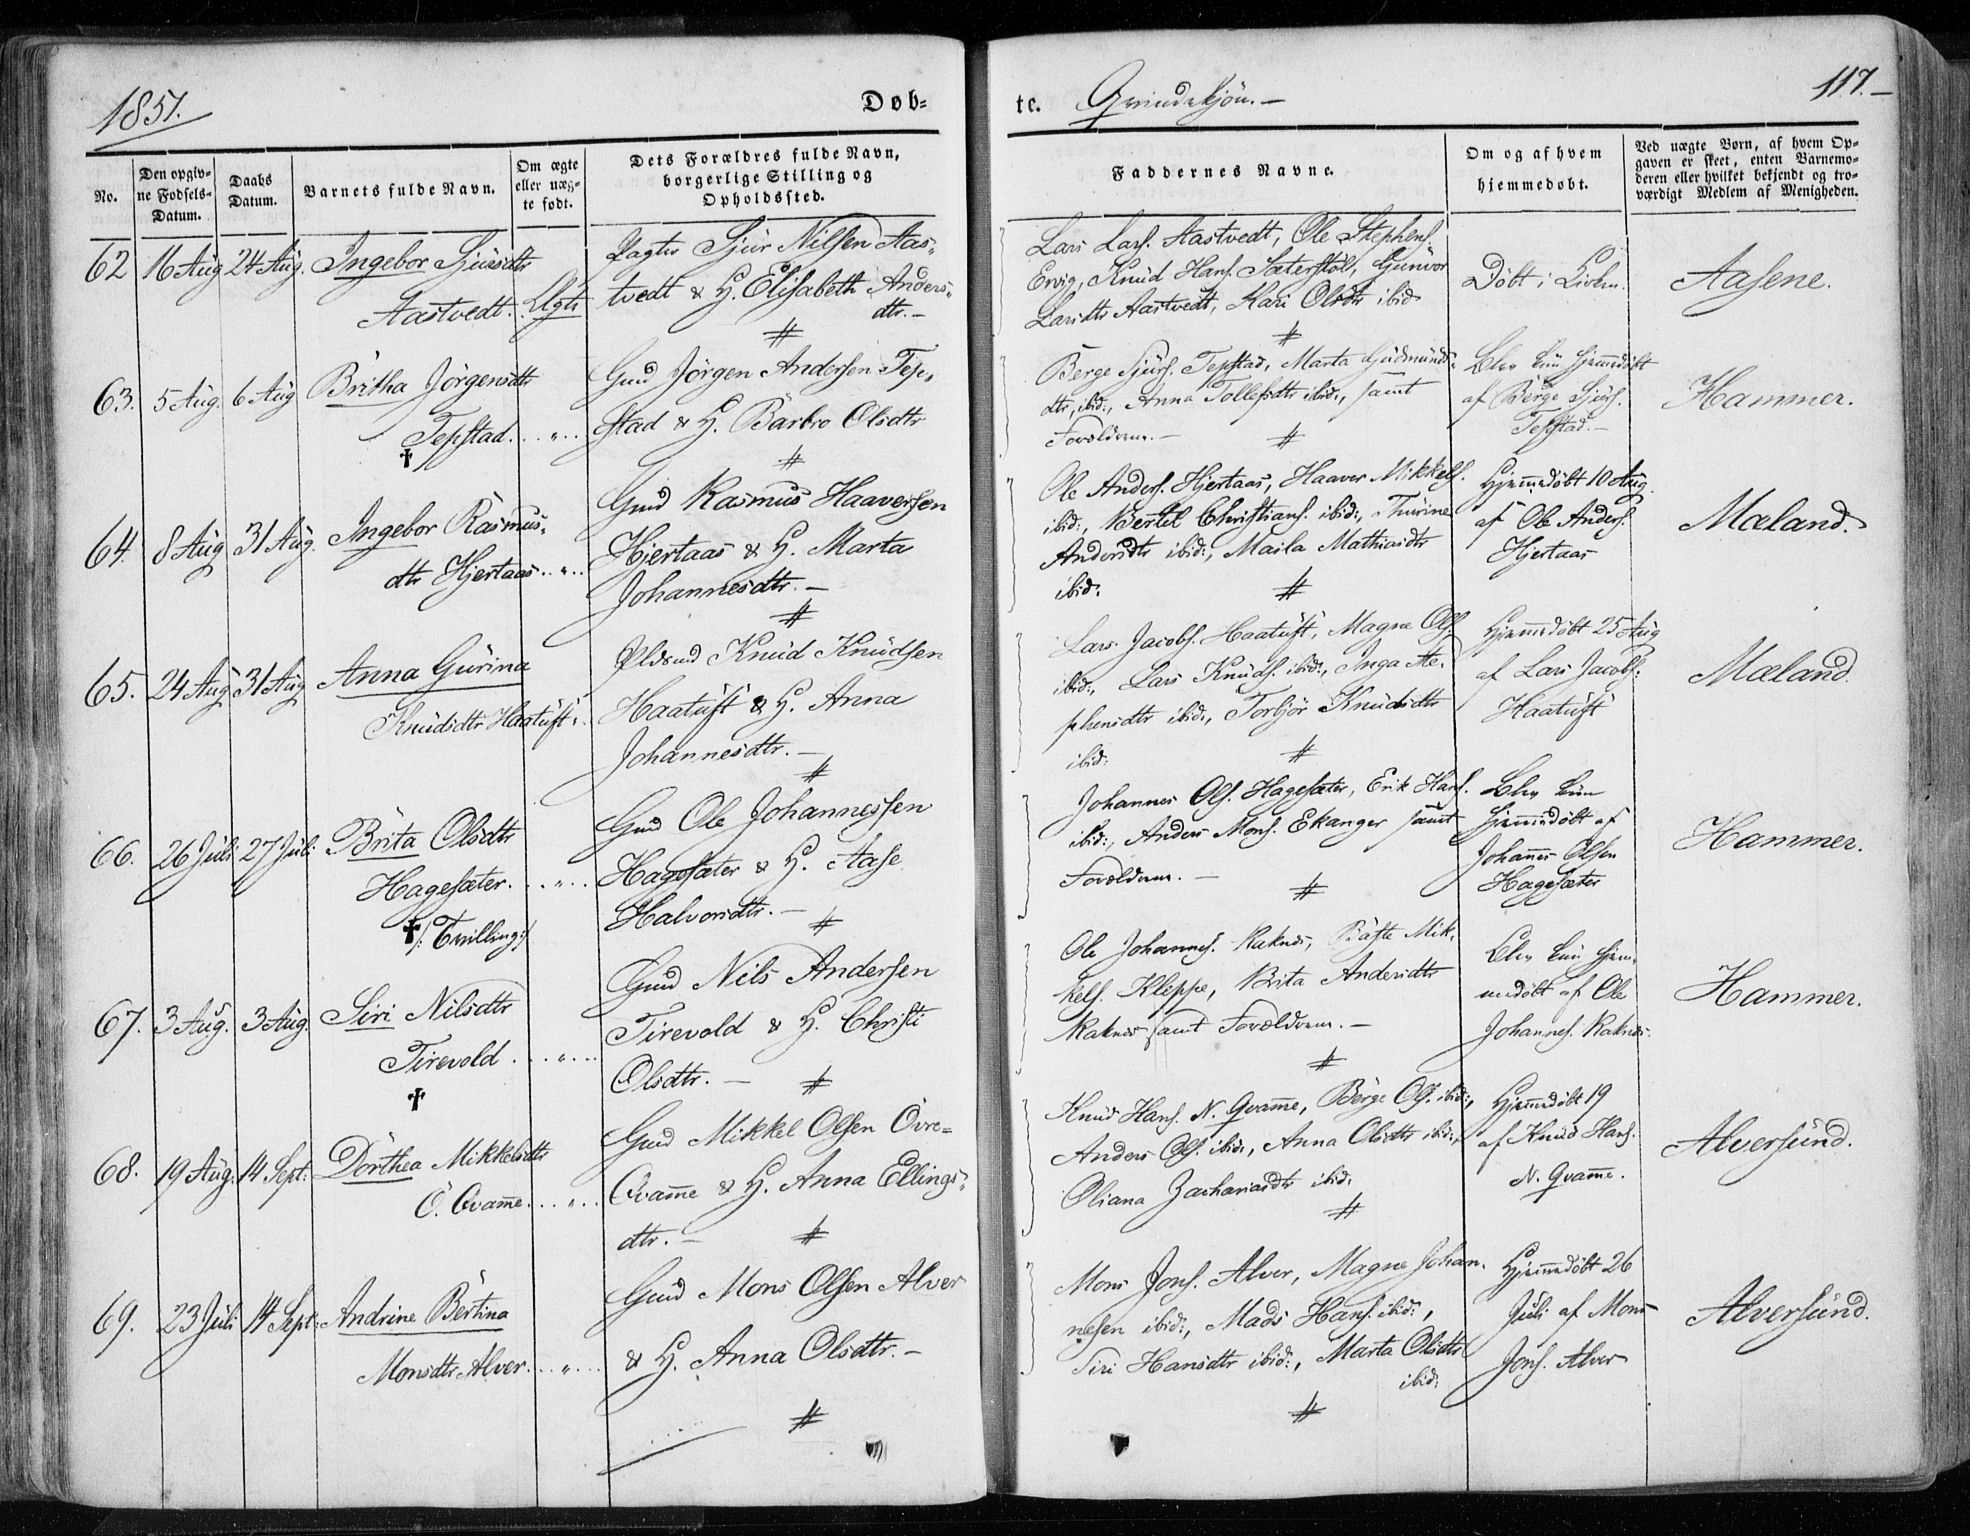 1851.
Døb-
te. Qvindekjön. –
117. –
No.
Den opgiv-
ne Fødsels-
Datum.
Daabs
Datum.
Barnets fulde Navn.
Om ægte
eller uæg-
te født.
Dets Forældres fulde Navn,
borgerlige Stilling og
Opholdssted.
Faddernes Navne.
Om og af hvem
hjemmedøbt.
Ved uægte Børn, af hvem Op-
gaven er skeet, enten Barnemo-
deren eller hvilket bekjendt og tro-
værdigt Medlem af Menigheden.
62 16 Aug 24 Aug. Ingebor Sjursdtr
Aastvedt. Ægte
Sjur Nilsen Aas-
tvedt & H. Elisabeth Anders-
dtr. –
Lars Lars. Aastvedt, Ole Stephens.
Knud Hans. Sæterstöl, Gunvor
Larsdtr Aastvedt, Kari Olsdtr ibid
Döbt i Kirken.
Aasene.
63. 5 Aug. 6 Aug Britha Jörgensdtr
Tepstad. . . „ . .
†
Gmd Jörgen Andersen Tep-
stad & H. Barbro Olsdtr
Berge Sjurs. Tepstad, Marta Gudmunds-
dtr, ibid:, Anna Tollefsdtr ibid:, samt
Forældrene. –
Blev kun hjemmedöbt
af Berge Sjurs.
Tepstad. –
Hammer.
64. 8 Aug 31 Aug. Ingebor Rasmus-
dtr Hjertaas . . „ . .
Gmd Rasmus Haaversen
Hjertaas & H. Marta
Johannesdtr. –
Ole Anders. Hjertaas, Haaver Mikkels.
ibid:, Bertel Christians. ibid:, Thurine
Andersdtr ibid:, Maila Mathiasdtr
ibid:
Hjemmedöbt 10 Aug.
af Ole Anders.
Hjertaas
Mæland.
65. 24 Aug 31 Aug Anna Gurina
Knudsdtr Haatuft „ .
Pldsmd Knud Knudsen
Haatuft & H. Anna
Johannesdtr. –
Lars Jacobs. Haatuft, Magne Ols.
ibid:, Lars Knuds. ibid:, Inga Ste-
phensdtr ibid:, Torbjör Knudsdtr
ibid:
Hjemmedöbt 25 Aug
af Lars Jacobs.
Haatuft
Mæland.
66. 26 Juli 27 Juli Brita Olsdtr
Hagesæter. . . „ . .
† /: Tvilling :/
Gmd Ole Johannessen
Hagesæter & H. Aase
Halvorsdtr. –
Johannes Ols. Hagesæter, Erik Hans.
ibid:, Anders Mons. Ekanger samt
Forældrene. –
Blev kun
hjemmedöbt af
Johannes Olsen
Hagesæter
Hammer.
67. 3 Aug. 3 Aug. Siri Nilsdtr
Tirevold . . . „ . . .
†
Gmd Nils Andersen
Tirevold & H. Christi
Olsdtr. –
Ole Johannes. Raknes, Mik-
kels. Kleppe, Brita Andersdtr
Raknes samt Forældrene. –
Blev kun hjem-
medöbt af Ole
Johannes. Raknes.
Hammer.
68. 19 Aug. 14 Sept: Dörthea Mikkelsdtr
Ö. Qvamme. . . „ . .
Gmd Mikkel Olsen Övre-
Qvamme & H. Anna Ellings-
dtr. –
Knud Hans. N. Qvamme, Börge Ols. ibid:,
Anders Ols. ibid:, Anna Olsdtr ibid:,
Oliana Zachariasdtr ibid:
Hjemmedöbt 19
af Knud Hans.
N. Qvamme.
Alversund.
69. 23 Juli 14 Sept: Andrine Bertina
Monsdtr Alver. . . „ . . .
Gmd Mons Olsen Alver
& H. Anna Olsdtr. –
Mons Jons. Alver, Magne Johan-
nesen ibid:, Mads Hans. ibid:,
Siri Hansdtr ibid:, Marta Olsdtr
ibid:
Hjemmedöbt 26
Juli af Mons
Jons. Alver
Alversund.